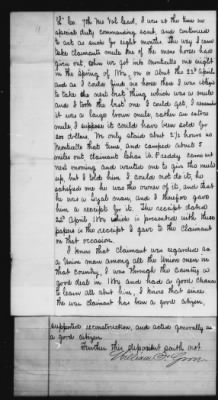 Co. 7th Mo Vol Cav'l, I was at the time on
special duty commanding scout, and continued
to act as such for eight months. The way I came
take claimants mule one of the mens horses had
given out, when we got into Montvallo one night
in the Spring of 1862, on or about the 22d April
and as I could find no horse then I was oblige
to take the next best thing which was a mule
and I took the best one I could get, I remember
it was a large brown mule, rather an extra
mule, I suppose it could have been sold for
200 dollars. We only staid about 2½ hours in
Montvallo that time, and camped about 5
miles out, claimant Caleb W. Preddy came out
next morning and wanted me to give the mule
up, but I told him I could not do it, he
satisfied me he was the owner of it, and that
he was a loyal man, and I therefore gave
him a receipt for it. The receipt dated
22d April, 1862 which is presented with these
papers is the receipt I gave to the claimant
on that occasion.
I know that claimant was regarded as
a Union man among all the Union men in
that country, I was through the country a
good deal in 1862 and had a good chance
to learn all about him, I know that since
the war claimant has been a good citizen,
supported reconstruction, and acted generally as
a good citizen.
Further this deponent saith not.
William